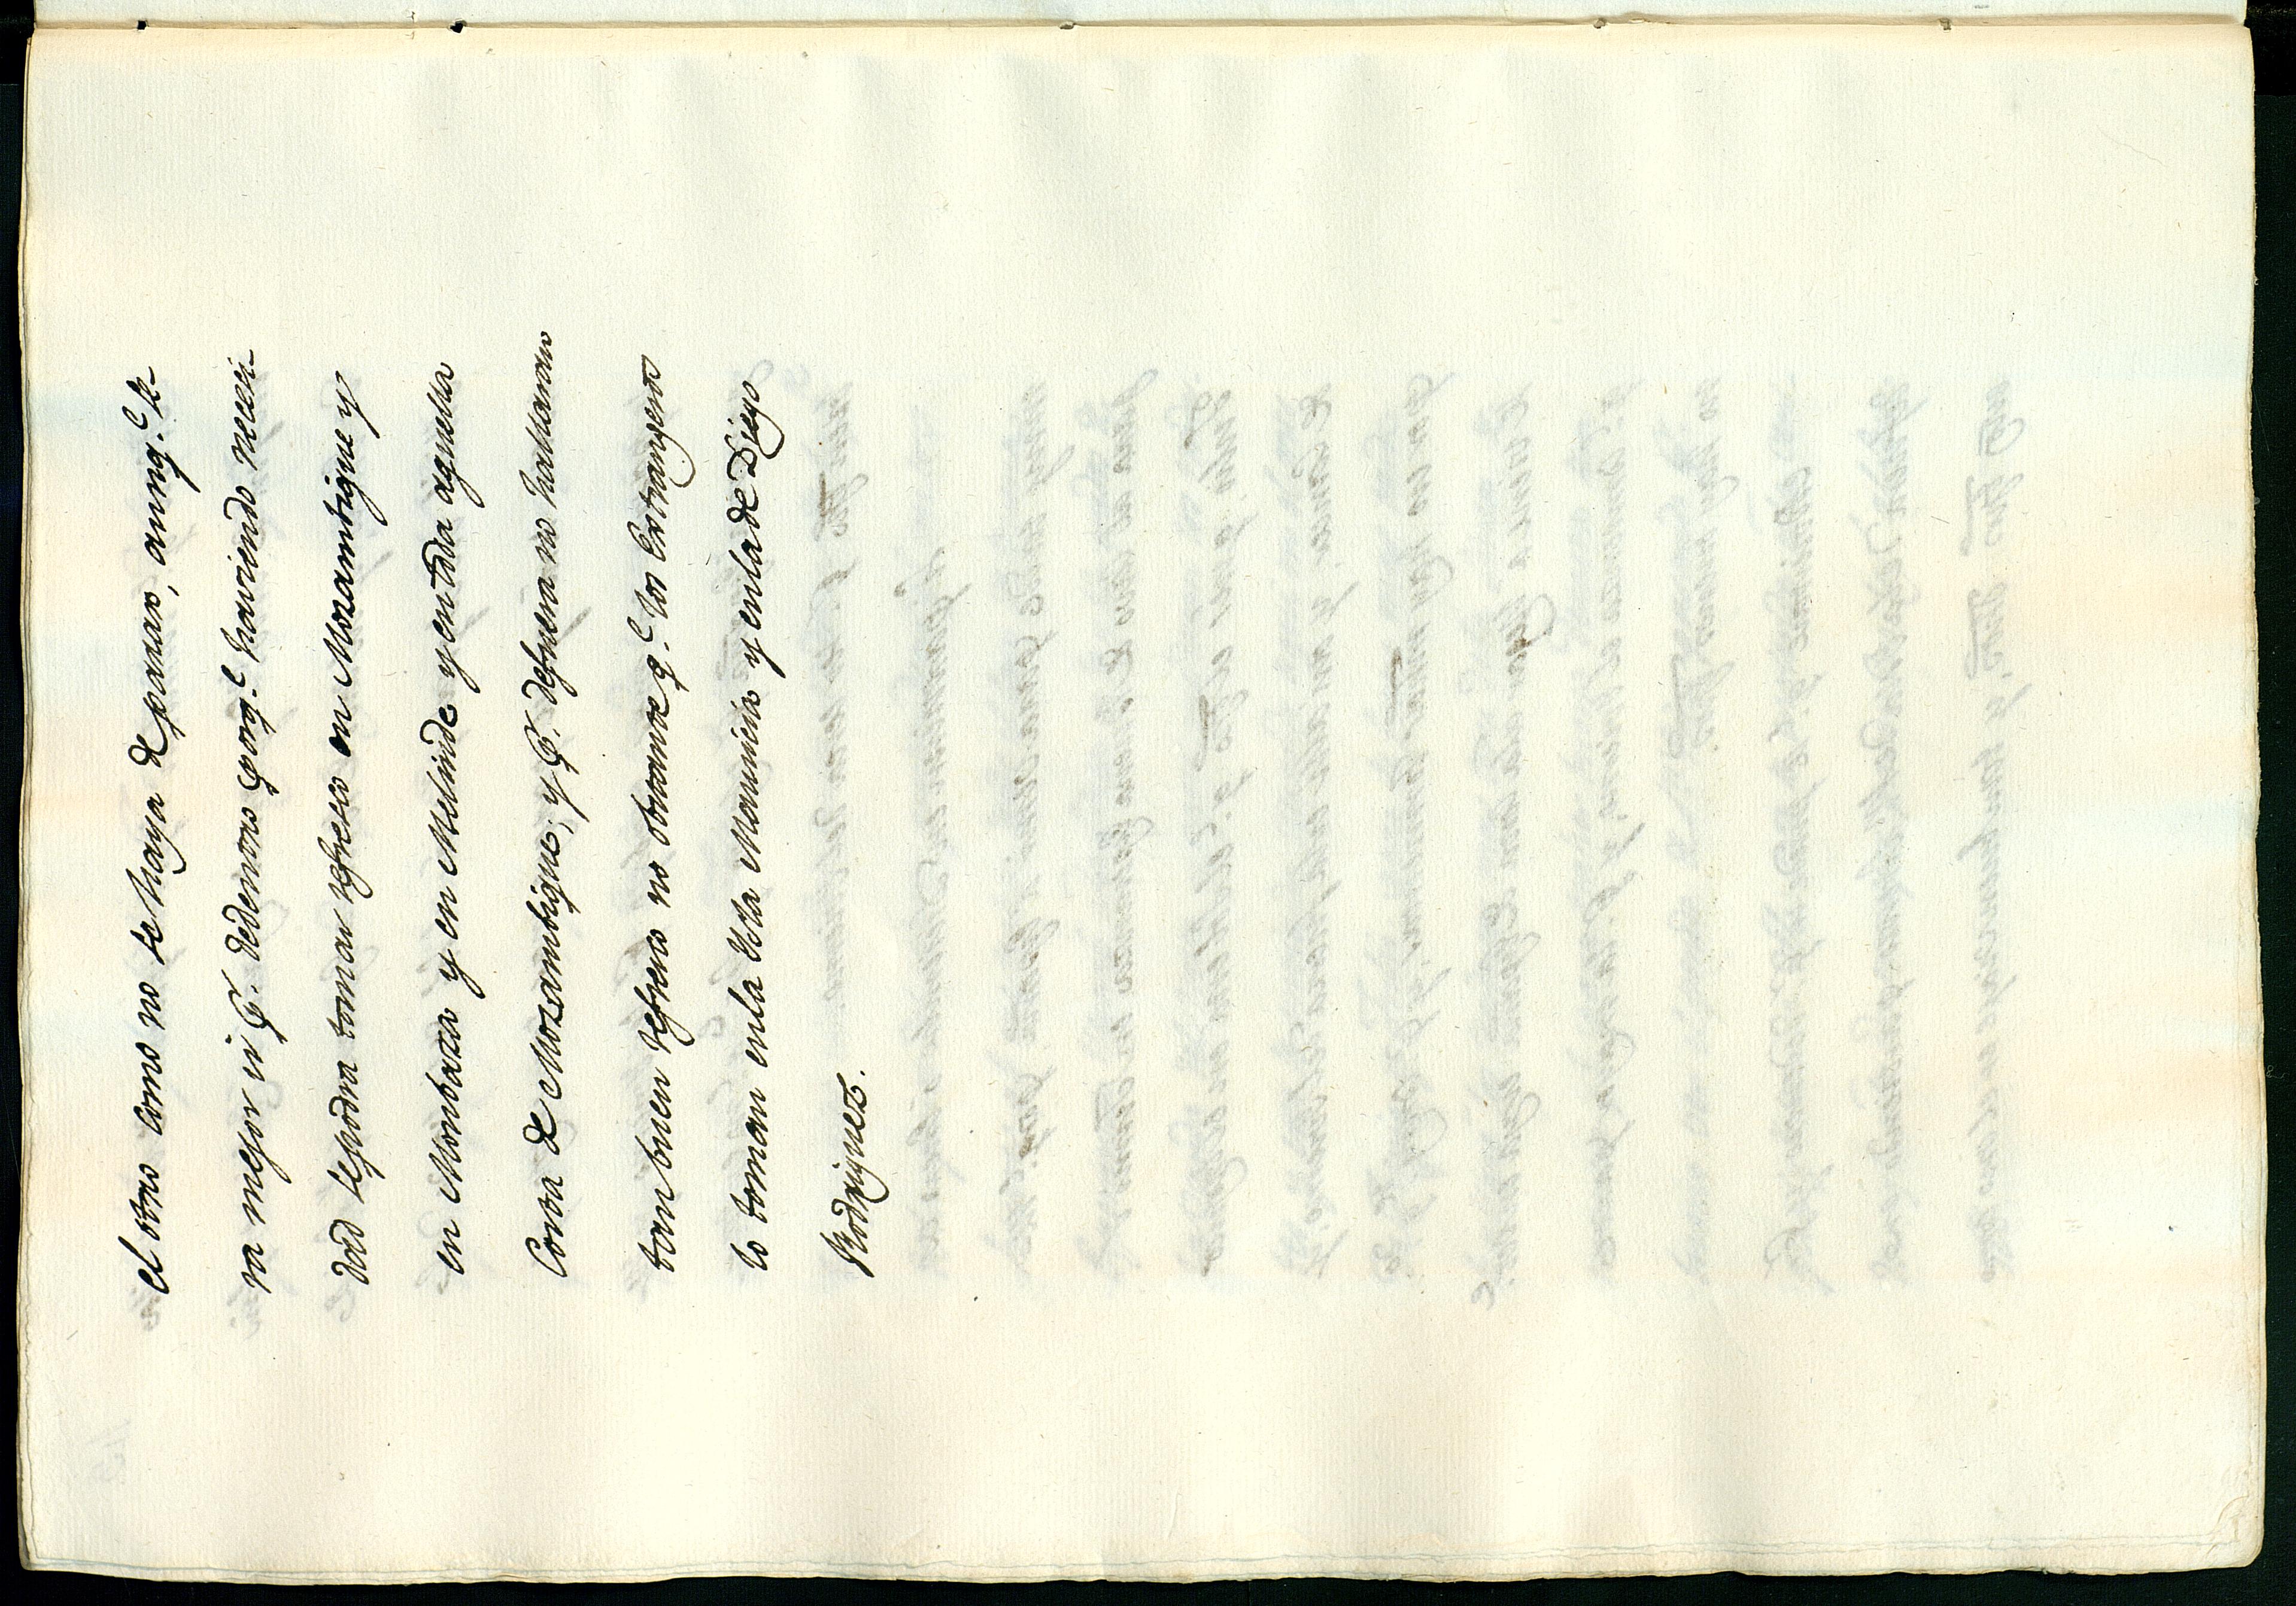 el otro como no se haya de parar, aunq.e se-
ra mejor ir P. dedentro porq.e haviendo necesi-
dad se podra tomar refresco en Mozambique y
en Monbaza y en Melinde y en toda aquella
Costa de Mozambique; y P. defuera no hallaran
tan buen refresco no obstante q.e los Estrangeros
lo toman en la Isla Mauricia y en la de Diego
Rodriguez.